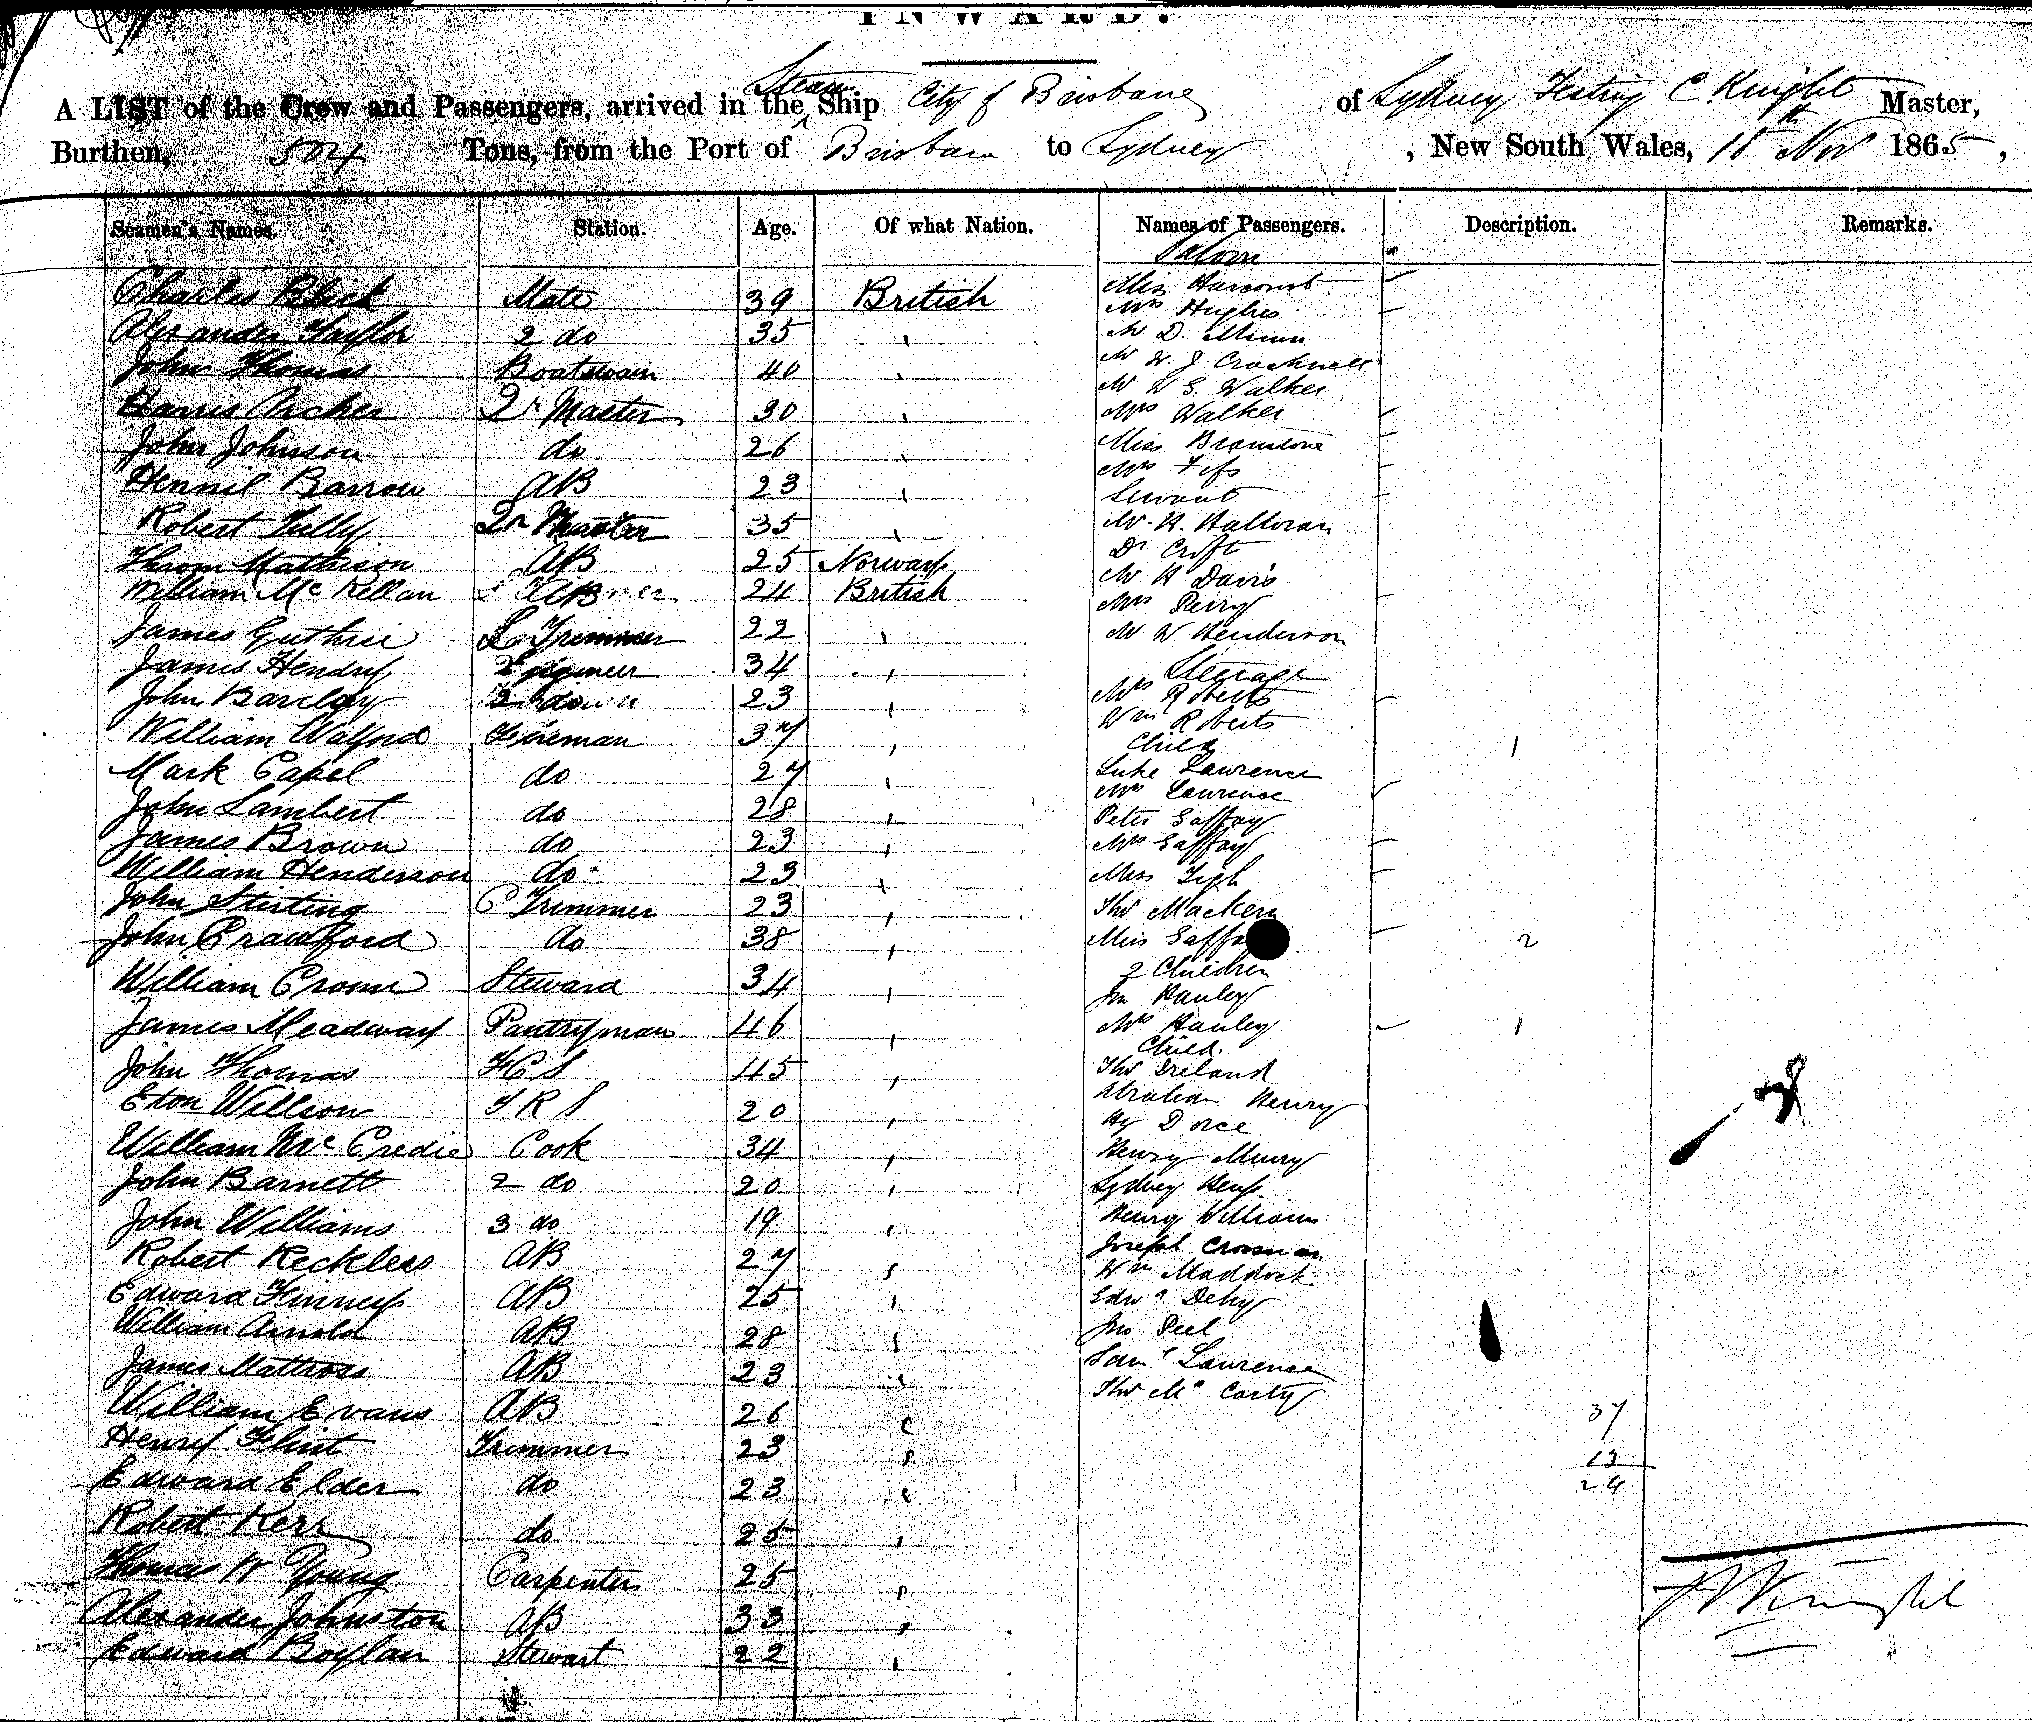 INWARD.
A LIST of the Crew and Passengers, arrived in the Steam Ship City of Brisbane of Sydney C. Knight Master,
Burthen, 504 Tons, from the Port of Brisbane to Sydney, New South Wales, 15th Nov 1865,
Seamen's Names. Station. Age. Of what Nation. Names of Passengers. Description. Remarks.
Saloon
Charles Black Mate 39 British Miss Harcourt
Mrs Hughes
Alexander Taylor 2 do 35 Mr D.
John Thomas Boatswain 40 Mr W. J Cracknell
Mr W S. Walker
Archer Qr Master 30 Mrs Walker
John Johnson do 26 Miss
Barrow AB 23 Mrs
Servant
Robert Tully Qr Master 35 Mr. H. Halloran
Mathison AB 25 Norway Dr Croft
William McKellan AB 24 British Mr H Davis
Mrs Perry
James Guthrie Trimmer 22 Mr W Henderson
James Hendry Engineer 34 Steerage
John Barclay 2 do 23 Mrs Roberts
Wm Roberts
William Walford Fireman 37 Child 1
Mark Capel do 27 Luke Lawrence
John Lambert do 28 Mrs Lawrence
Peter Gaffay
James Brown do 23 Mrs Gaffay
William Henderson do 23 Miss
John Stirling C Trimmer 23 Thos
John Crawford do 38 Miss 2
William Steward 34 2 Children
Jn Hanley
James Meadway Pantryman 46 Mrs Hanley 1
Child.
John Thomas 45 Thos Ireland
Eton Willson 20 Abraham Henry
Hy
William McCredie Cook 34 Henry
John Barnett 2 do 20 Sydney
John Williams 3 do 19 Henry Williams
Robert Reckless AB 27 Joseph
Wm Maddock
Edward Finney AB 25 Edwd
William Arnold AB 28 Jno Peel
James AB 23 Saml Lawrence
William Evans AB 26 Thos McCarty 37
Henry Flint Trimmer 23 13
Edward Elder do 23 24
Robert Kerr do 25
Thomas W Young Carpenter 25
Alexander Johnston AB 33
Edward Boylan Stewart 22
Knight